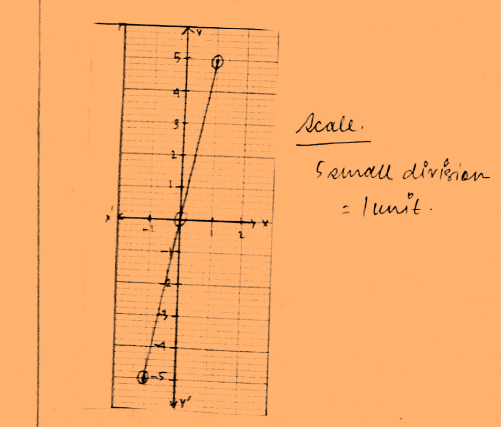 Y
5
4
3
2
1
X' -1 1 2 X
-1
-2
-3
-4
-5
Y'
Scale.
5 small division
= 1 unit.